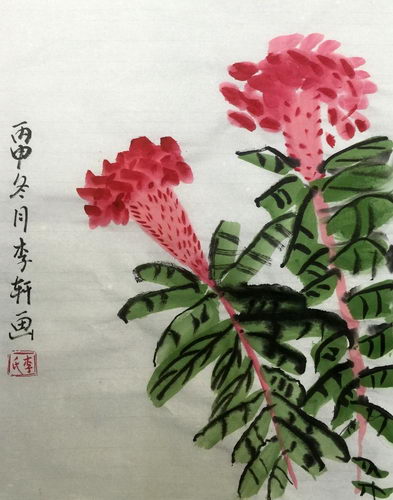 丙申冬月李轩画
李氏